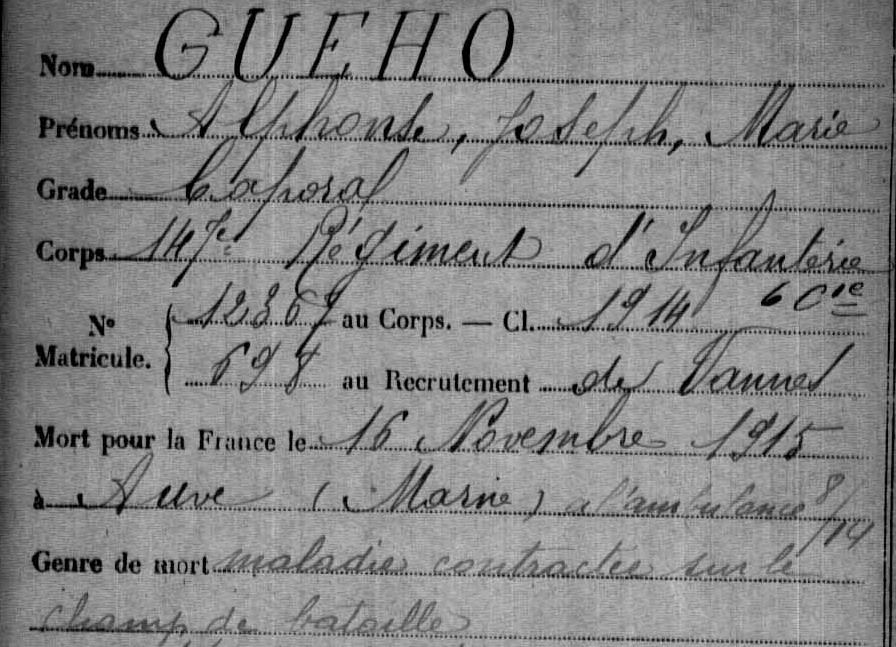 Nom GUEHO
Prénoms Alphonse, Joseph, Marie
Grade Caporal
Corps 147e Régiment d'Infanterie
6 Cie
N° Matricule. 12369 au Corps. — Cl. 1914
698 au Recrutement de Vannes
Mort pour la France le 16 Novembre 1915
à Auve (Marne) à l'ambulance 8/14
Genre de mort maladie contractée sur le
champ de bataille